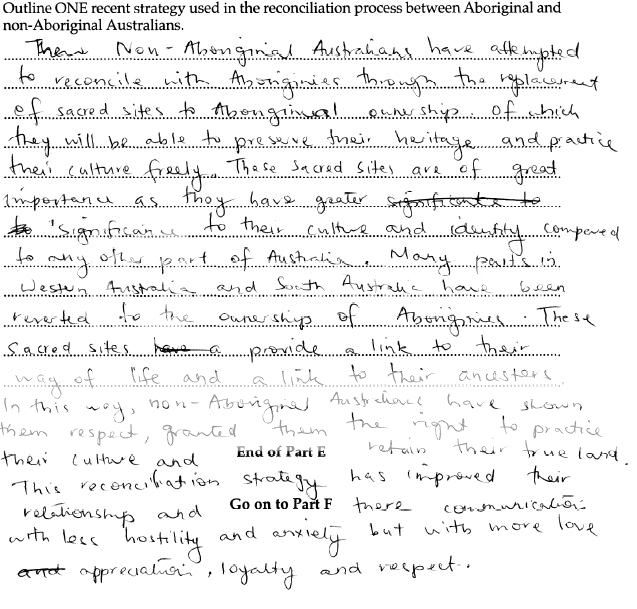 Outline ONE recent strategy used in the reconciliation process between Aboriginal and
non-Aboriginal Australians.
Non-Aboriginal Australians have attempted
to reconcile with Aboriginies through the replacement
of sacred sites to Aboriginal ownership. Of which
they will be able to preserve their heritage and practice
their culture freely. These sacred sites are of great
importance as they have greater significance to
to significance to their culture and identity compared
to any other part of Australia. Many parts in
Western Australia and South Australia have been
reverted to the ownership of Aboriginies. These
sacred sites have a provide a link to their
way of life and a link to their ancestors.
In this way, non-Aboriginal Australians have shown
them respect, granted them the right to practice
their culture and End of Part E retain their true land.
This reconciliation strategy has improved their
relationship and Go on to Part F there communication
with less hostility and anxiety but with more love
and appreciation, loyalty and respect.